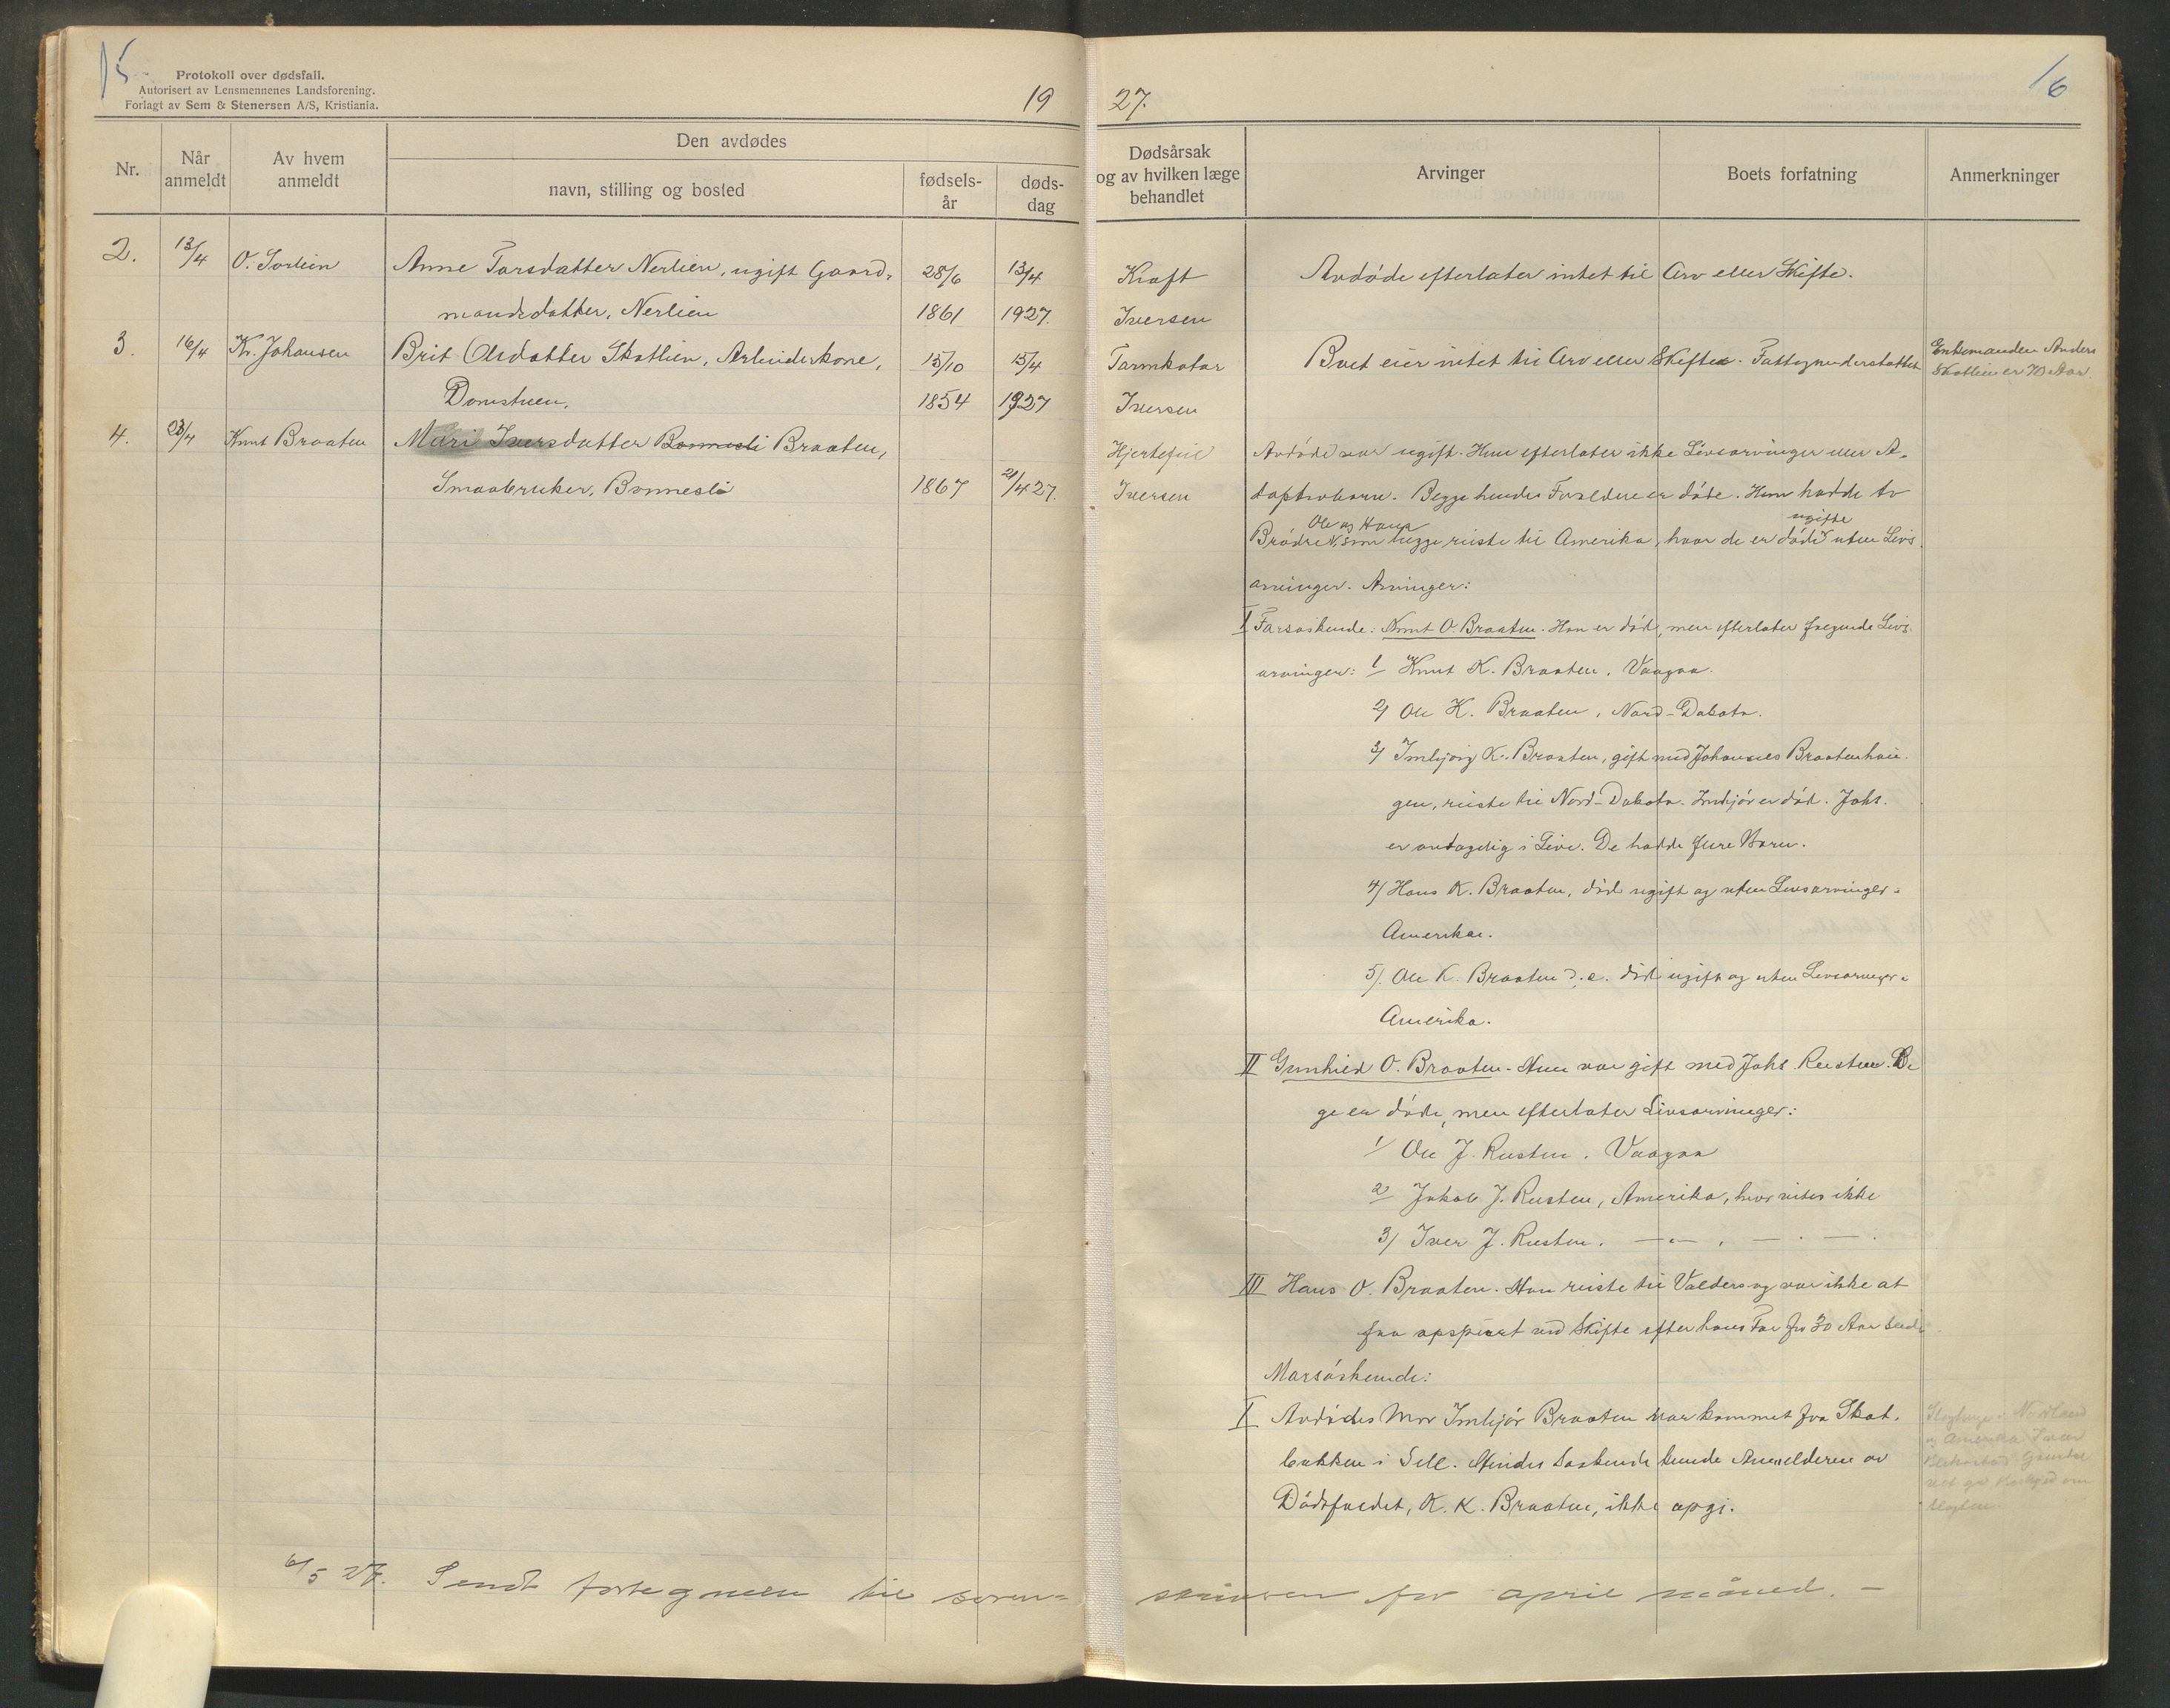 15
Protokoll over dødsfall.
Autorisert av Lensmennenes Landsforening.
Forlagt av Sem & Stenersen A/S, Kristiania.
19
Nr.
Når anmeldt
Av hvem anmeldt
Den avdødes
navn, stilling og bosted
fødsels-år
døds-dag
2. 13/4 O. Sorlien Anne Torsdatter Nerlien, ugift Gaard- 28/6 13/4
mandsdatter, Nerlien 1861 1927.
3. 16/4 Kr. Johansen Brit Olsdatter Skotlien, Arbeiderkone, 15/10 15/4
1854 1927
4. 23/4 Knut Braaten Mari Iversdatter Bonnesli Braaten,
Smaabruker, Bonnesli 1867 21/4 27.
6/5 27. Sendt fortegnelse til soren-
27.
16
Dødsårsak og av hvilken læge behandlet
Arvinger
Boets forfatning
Anmerkninger
Kræft Avdøde efterlater intet til Arv eller Skifte.
Iversen
Tarmkatar Boet eier intet til Arv eller Skifte. Fattigunderstøttet Enkemanden Anders
Skotlien er 70 Aar.
Iversen
Hjertefeil Avdøde var ugift. Hun efterlater ikke Livsarvinger eller A-
Iversen doptivbarn. Begge hendes Forældre er døde. Hun hadde to
Ole og Hans ugifte
Brødre, som begge reiste til Amerika, hvor de er døde uten Livs
arvinger. Arvinger:
I Farsøskende: Knut O. Braaten. Han er død, men efterlater følgende Livs-
arvinger: 1/ Knut K. Braaten, Vaagaa.
2/ Ole K. Braaten, Nord-Dakota.
3/ Imbjørg K. Braaten, gift med Johannes Braatenhau-
gen, reiste til Nord-Dakota. Imbjør er død. Johs.
er antagelig i Live. De hadde flere Barn.
4/ Hans K. Braaten, død ugift og uten Livsarvinger i
Amerika.
5/. Ole K. Braaten d.e. død ugift og uten Livsarvinger i
Amerika.
II Gunhild O. Braaten. Hun var gift med Johs. Rusten. Be
ge er døde, men efterlater Livsarvinger:
1/ Ole J. Rusten, Vaagaa
2/ Jakob J. Rusten, Amerika, hvor vites ikke
3/ Iver J. Rusten. — " — , — . — .
III Hans O. Braaten. Han reiste til Valders og var ikke at
faa opspurt ved Skifte efter hans Far for 30 Aar siden
Morsøskende:
I Avdødes Mor Imbjør Braaten var kommet fra Skot-
bakken i Sell. Hendes Søskende kunde Anmelderen av
Dødsfaldet, K. K. Braaten, ikke opgi.
Nordland
og Amerika Iver
skriveren for april måned. —